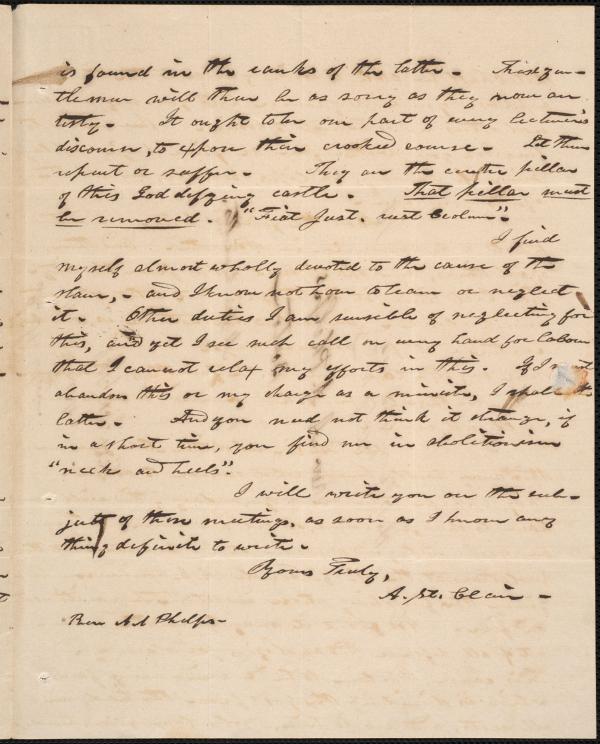 is found in the ranks of the latter. These gen-
tlemen will then be as sorry as they now are
testy. It ought to be one part of every lecturer's
discourse, to expose their crooked course. Let them
repent or suffer. They are the center pillar
of this God defying castle. That pillar must
be removed. "Fiat Just. ruat Coelum".
I find
myself almost wholly devoted to the cause of the
slave, - and I know not how to leave or neglect
it. Other duties I am sensible of neglecting for
this, and yet I see such call on every hand for labour
that I cannot relax my efforts in this. If I must
abandon this or my charge as a minister, I shall the
latter. And you need not think it strange, if
in a short time, you find me in abolitionism
"neck and heels".
I will write you on the sub-
ject of those meetings, as soon as I know any
thing definite to write.
Yours Truly,
A. St. Clair -
Rev A. A Phelps -